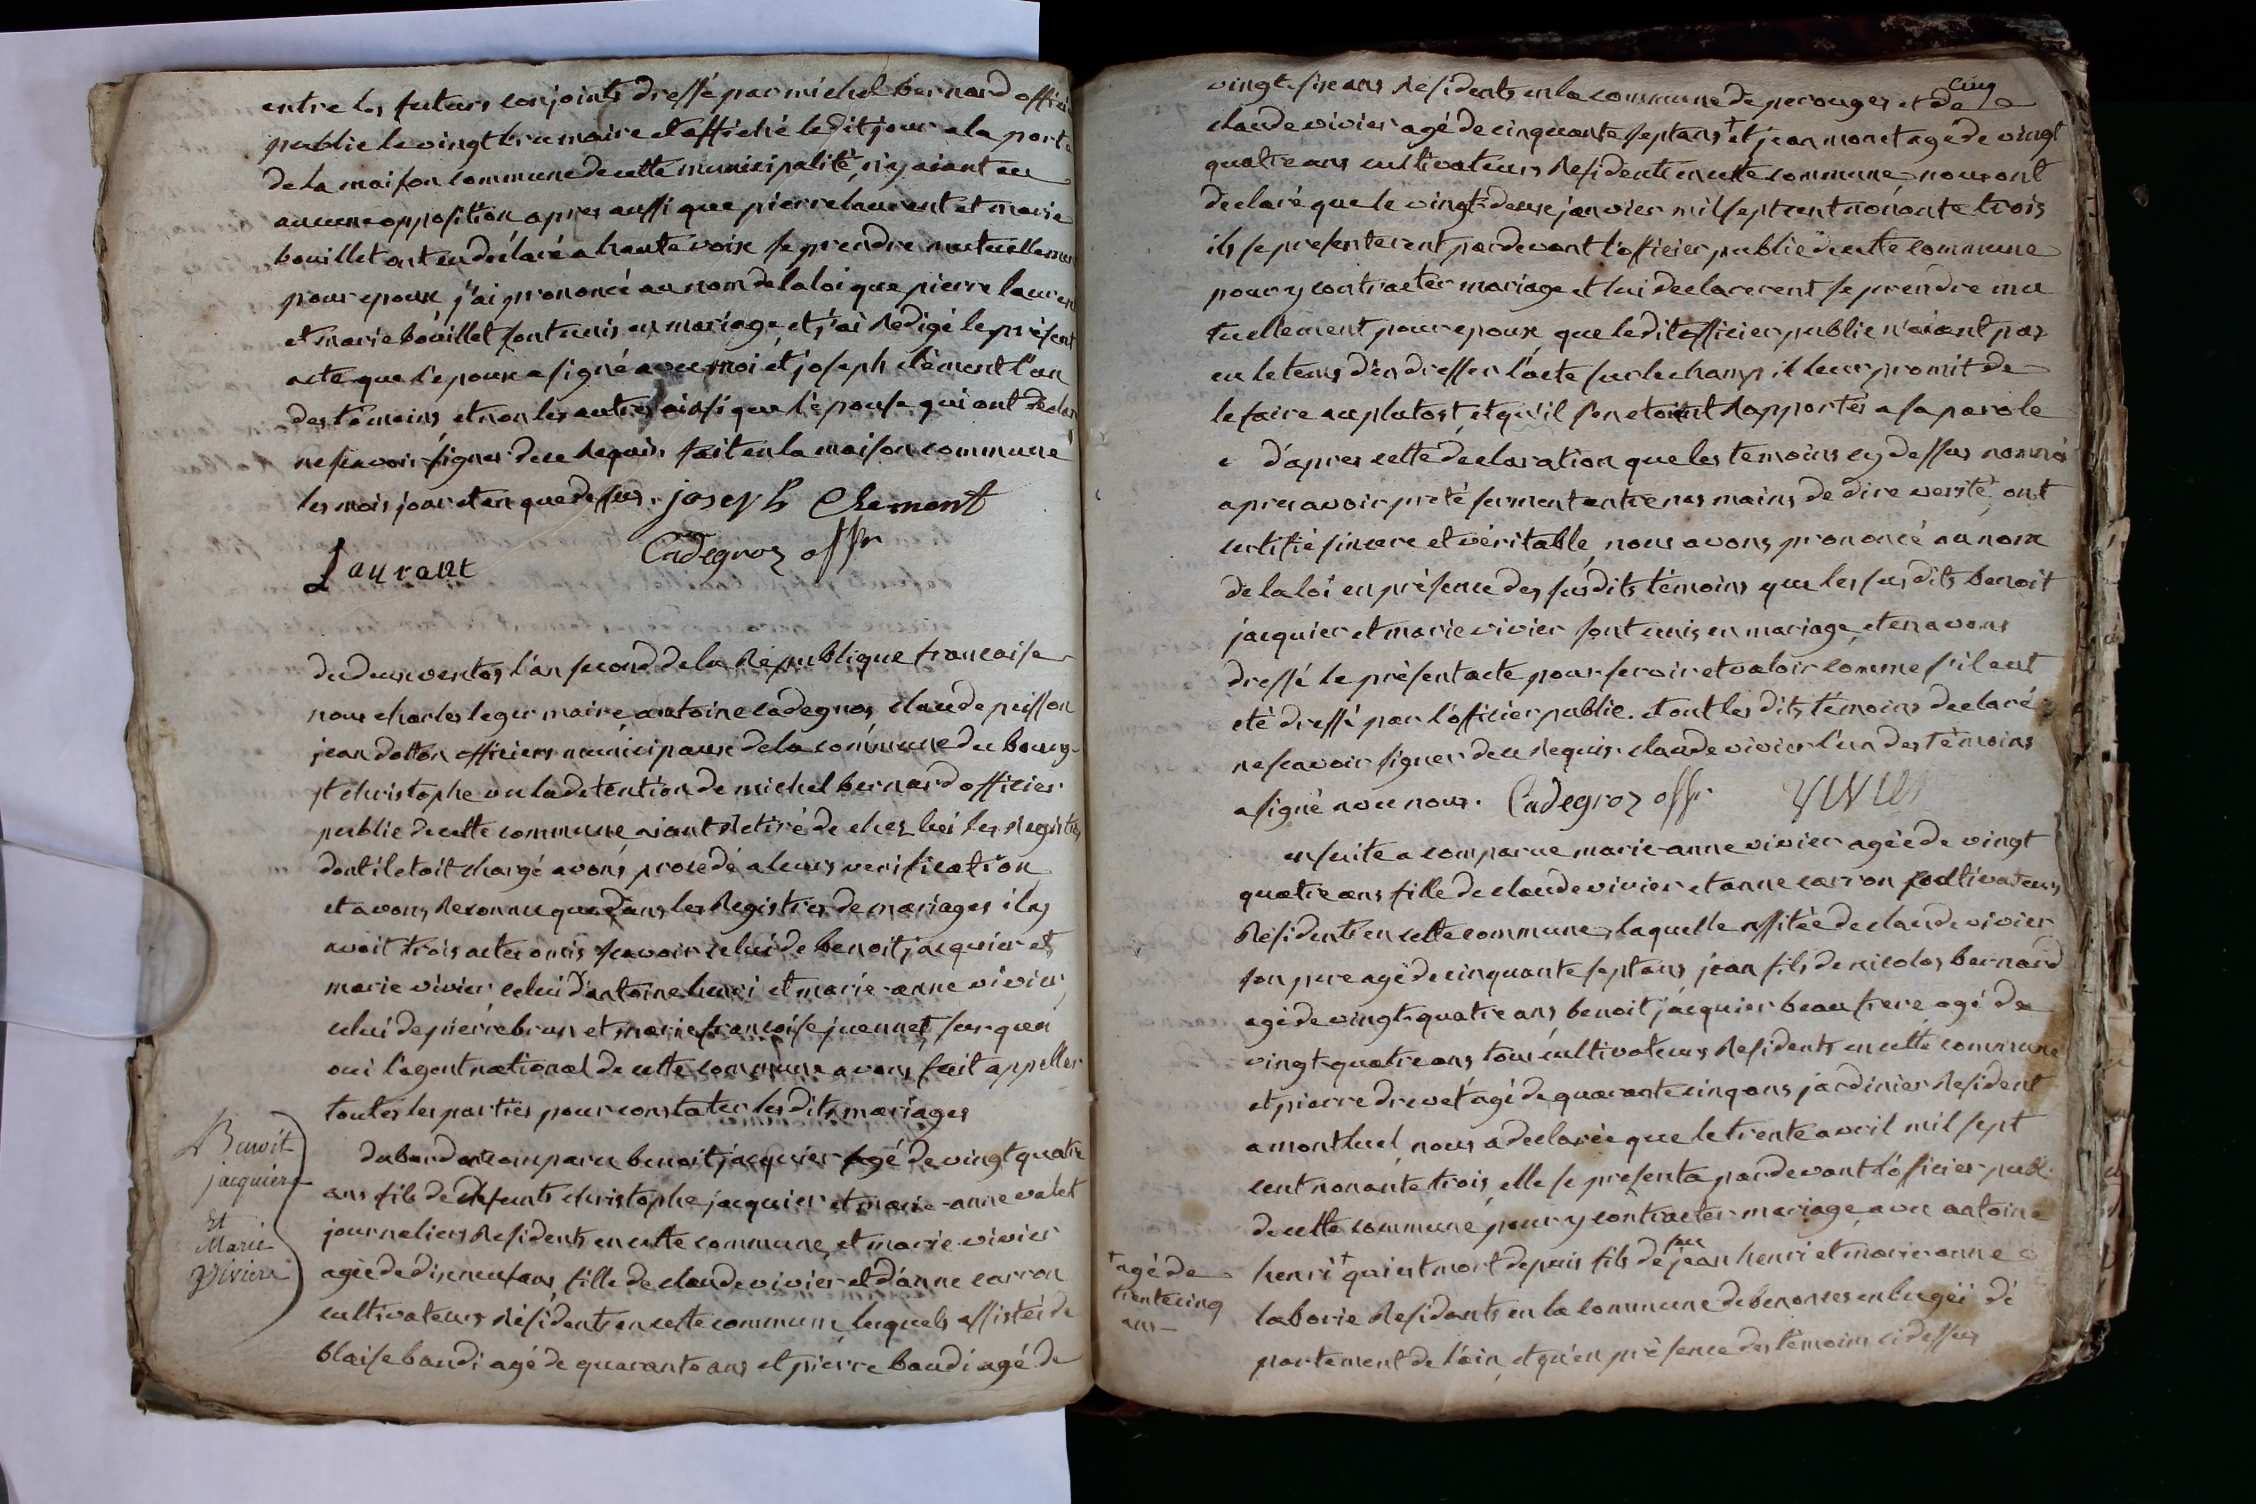 entre les futurs conjoints dressé par michel bernard offici
public le vingt brumaire et affiché le dit jour a la porte
de la maison commune de cette municipalité, n'y aiant eu
aucune opposition apres aussi que pierre laurent et marie
bouillet ont eu déclaré a haute voix se prendre mutuellement
pour epoux j'ai prononcé au nom de la loi que pierre laurent
et marie bouillet sont unis en mariage et j'ai redigé le présent
acte que l'epoux a signé avec moi et joseph clément l'un
des témoins et non les autres ainsi que l'épouse qui ont déclaré
ne scavoir signer de ce requis fait en la maison commune
les mois jour et an que dessus. joseph Clemant
Laurant Cadegros offr
du deux ventos l'an second de la République francaise
nous charles leger maire antoine cadegros claude puisson
jean dotton officiers municipaux de la commune du bourg
st christophe vu la détention de michel bernard officier
public de cette commune aiant rétiré de chez lui les registres
dont il etoit chargé avons procédé a leurs verification
et avons reconnu que dans les Registres de mariages il y
avoit trois actes omis scavoir celui de benoit jacquier et
marie vivier, celui d'antoine henri et marie-anne vivier
celui de pierre brun et marie francoise juennet, sur quoi
oui l'agent national de cette commune avons fait appeller
toutes les parties pour constater les dits mariages
Benoit
jacquier
et
Marie
Vivier
dabord ont comparu benoit jacquier agé de vingt quatre
ans fils de defunts christophe jacquier et marie-anne valet
journaliers Residents en cette commune, et marie vivier
agée de dix neuf ans, fille de claude vivier et d'anne carron
cultivateurs résidents en cette commune, lesquels assistés de
blaise baudi agé de quarante ans et pierre baudi agé de
cinq
vingt six ans residents en la commune de perouges et de
claude vivier agé de cinquante sept ans + et jean monet agé de vingt
quatre ans cultivateurs Résidents en cette commune nous ont
declaré que le vingt-deux janvier mil sept cent nonante trois
ils se presenterent pardevant l'officier public de cette commune
pour y contracter mariage et lui declarerent se prendre mu
tuellement pour epoux, que le dit officier public n'aiant pas
eu le tems d'en dresser l'acte sur le champ il leur promit de
le faire au plutost, et qu'il s'en etoient rapportés a sa parole
d'apres cette déclaration que les temoins cy dessus nommés
apres avoir preté serment entre nos mains de dire verité, ont
certifié sincere et véritable, nous avons prononcé au nom
de la loi en présence des susdits témoins que les susdits benoit
jacquier et marie vivier sont unis en mariage, et en avons
dressé le présent acte pour servir et valoir comme s'il eut
eté dressé par l'officier public. et ont les dits témoins declaré
ne scavoir signer de ce requis claude vivier l'un des témoins
a signé avec nous. Cadegros offr VIVIER
ensuite a comparue marie-anne vivier agée de vingt
quatre ans fille de claude vivier et anne carron cultivateurs
Résidents en cette commune, laquelle assitée de claude vivier
son pere agé de cinquante sept ans, jean fils de nicolas bernard
agé de vingt-quatre ans, benoit jacquier beau frere agé de
vingt-quatre ans tous cultivateurs Résidents en cette commune
et pierre drevet agé de quarante cinq ans jardinier Resident
a montluel, nous a declarée que le trente avril mil sept
cent nonante trois, elle se presenta pardevant l'oficier publ.
de cette commune, pour y contracter mariage, avec antoine
feu
henri + qui est mort depuis fils de jean henri et marie anne
+ agé de
trente cinq
ans
laborie Residants en la commune de benonces en bugeï dé
partement de l'ain, et qu'en présence des témoins ci dessus